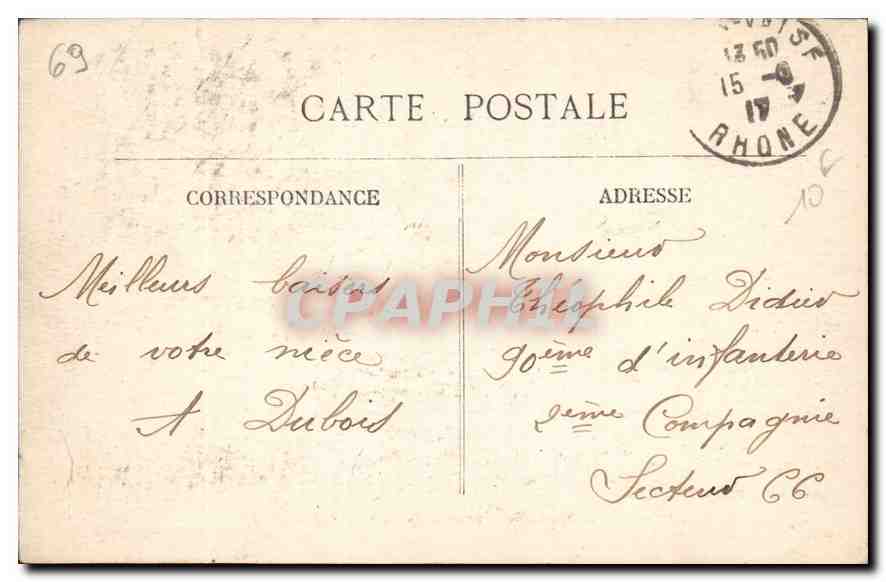 69
13 50
15 -9
RHONE
CARTE POSTALE
10 €
CORRESPONDANCE
ADRESSE
Meilleurs baisers
de votre nièce
A. Dubois
Monsieur
Théophile Didier
90ème d'infanterie
9ème Compagnie
Secteur 66
CPAPHIL